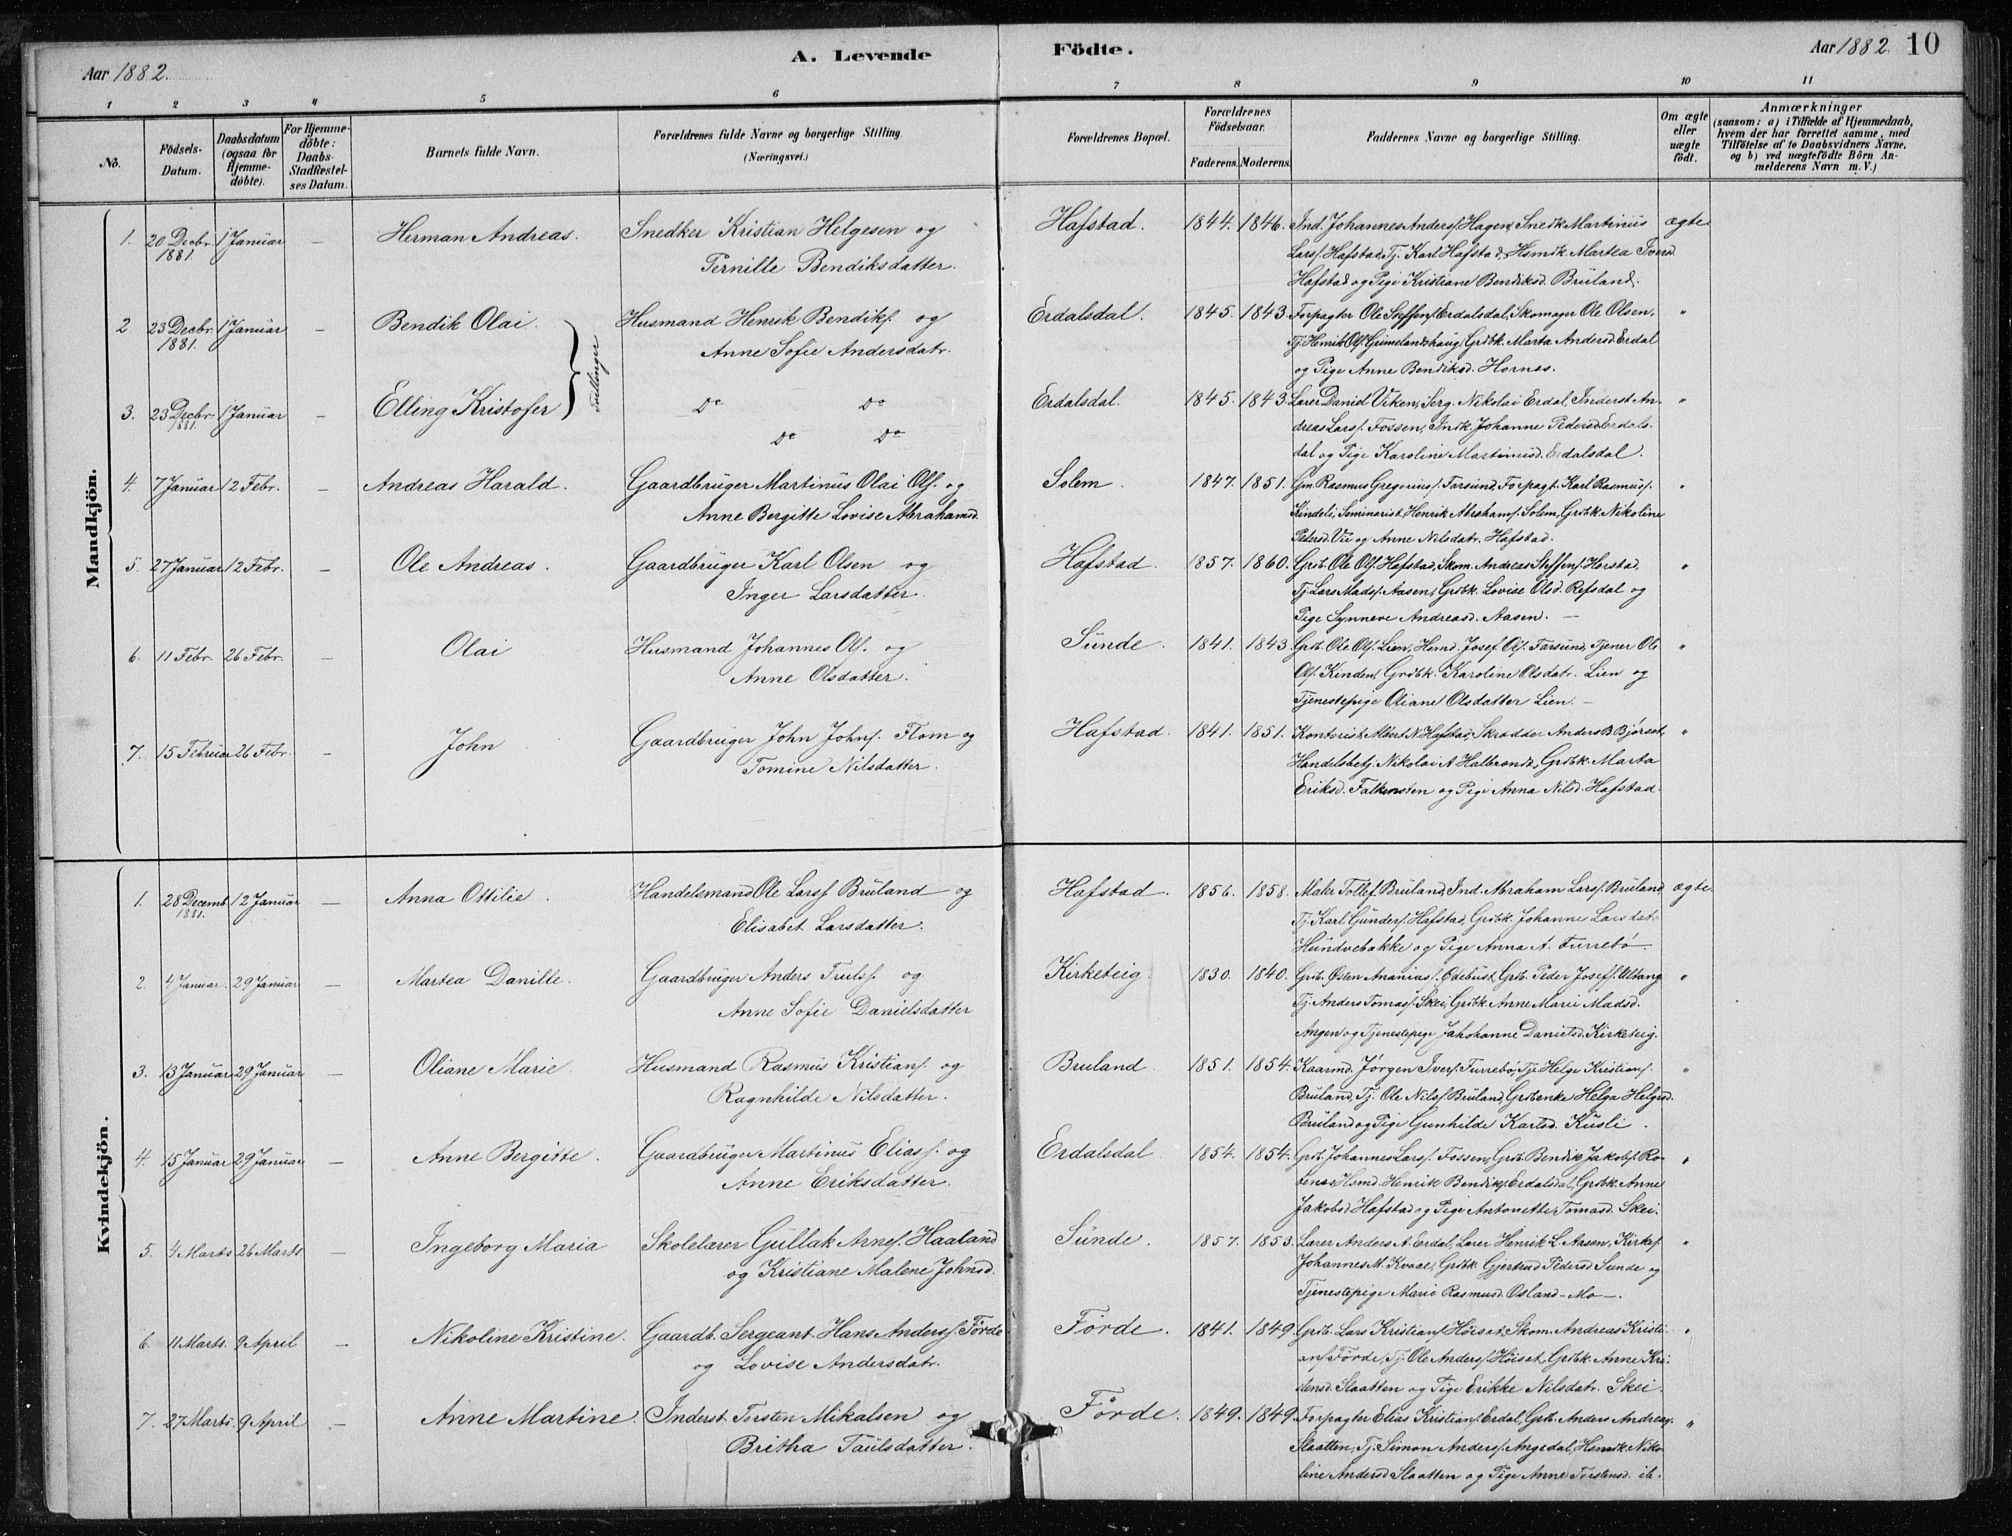 A. Levende Födte.
Aar 1882.
Aar 1882. 10
1 2 3 4 5 6 7 8 9 10 11
No.
Födsels-Datum.
Daabsdatum (ogsaa for Hjemme-döbte).
For Hjemme-döbte: Daabs-Stadfæstel-ses Datum.
Barnets fulde Navn.
Forældrenes fulde Navne og borgerlige Stilling.
(Næringsvei.)
Forældrenes Bopæl.
Forældrenes Födselsaar.
Faderens. Moderens.
Faddernes Navne og borgerlige Stilling.
Om ægte eller uægte födt.
Anmærkninger
(saasom: a) i Tilfælde af Hjemmedaab,
hvem der har forrettet samme, med
Tilföielse af to Daabsvidners Navne,
og b) ved uægtefödte Börn An-
melderens Navn m.V.)
Mandkjön.
1. 20 Decbr. 1881. 1 Januar — Herman Andreas. Snedker Kristian Helgesen og Hafstad. 1844. 1846. Ind. Johannes Anders. Hagen, Snedk. Martinus ægte
Pernille Bendiksdatter. Lars. Hafstad, Tj. Karl Hafstad, Hsmdk. Martea Iversd.
Hafstad og Pige Kristiane Bendiksd. Bruland.
2 23 Decbr. 1881. 1 Januar — Bendik Olai. Husmand Henrik Bendiks. og Erdalsdal. 1845. 1843. Forpagter Ole Steffens. Erdalsdal, Skomager Ole Olsen, "
Tvillinger
Anne Sofie Andersdatr. Tj. Henrik Ols. Grimelandshaug, Grdbk. Marta Andersd. Erdal
og Pige Anne Bendiksd. Hornes.
3. 23 Decbr. 1881. 1 Januar — Elling Kristofer Do Do Erdalsdal. 1845. 1843. Lærer Daniel Viken, Serg. Nikolai Erdal, Inderst An- "
Do Do dreas Lars. Fossen, Indk. Johanne Pedersd. Erdals-
dal og Pige Karoline Martinusd. Erdalsdal.
4. 7 Januar 12 Febr. — Andreas Harald. Gaardbruger Martinus Olai Ols. og Solem. 1847. 1851. Gm. Rasmus Gregorius. Farsund, Forpagt. Karl Rasmus. "
Anne Bergitte Lovise Abrahamsd. Kindeli, Seminarist Henrik Abrahams. Solem, Grdbk. Nikoline
Pedersd. Vie og Anne Nilsdatr. Hafstad.
5. 27 Januar 12 Febr. — Ole Andreas. Gaardbruger Karl Olsen og Hafstad. 1857. 1860. Grdb. Ole Ols. Hafstad, Skom. Andreas Steffens. Harstad, "
Inger Larsdatter. Tj. Lars Mads. Aasen, Grdbk. Lovise Olsd. Refsdal og
Pige Synneve Andreasd. Aasen. —
6. 11 Febr. 26 Febr. — Olai Husmand Johannes Ols. og Sunde. 1841. 1843. Grdb. Ole Ols. Lien, Hsmd. Josef Ols. Farsund, Tjener Ole "
Anne Olsdatter. Ols. Kinden, Grdbk. Karoline Olsdatr. Lien og
Tjenestepige Oliane Olsdatter Lien. —
7. 15 Februar 26 Febr. — John Gaardbruger John Johns. Flom og Hafstad. 1841. 1851. Kontorist Albert N. Hafstad, Skrædder Anders B. Bjørset, "
Tomine Nilsdatter. Handelsbetj. Nikolai A. Halbrendt, Grdbk. Marta
Eriksd. Falkensten og Pige Anna Nilsd. Hafstad.
Kvindekjön.
1. 28 Decemb. 1881. 12 Januar — Anna Ottilie. Handelsmand Ole Lars. Bruland og Hafstad. 1856. 1858. Maler Tollef Bruland, Ind. Abraham Lars. Bruland ægte.
Elisabet Larsdatter. Tj. Karl Gunders. Hafstad, Grdbk. Johanne Larsdatr.
Hundvebakke og Pige Anna A. Furrebø.
2. 4 Januar. 29 Januar — Martea Danille. Gaardbruger Anders Truls. og Kirketeig. 1830. 1840. Grdb. Østen Ananias. Ødebust, Grdb. Peder Josefs. Ultang "
Anne Sofie Danielsdatter Tj. Anders Tomas. Skei, Grdbk. Anne Marie Madsd.
Angen og Tjenestepige Jahohanne Danielsd. Kirketeig.
3. 13 Januar 29 Januar — Oliane Marie. Husmand Rasmus Kristians. og Bruland. 1851. 1854. Kaarmd. Jørgen Ivers. Furrebø, Tj. Helge Kristians. "
Ragnhilde Nilsdatter. Bruland, Tj. Ole Nils. Bruland, Grdbenke Helga Helgesd.
Bruland og Pige Gunhilde Karlsd. Kusli.
4. 15 Januar 29 Januar — Anne Bergitte. Gaardbruger Martinus Elias. og Erdalsdal 1854. 1854. Grdb. Johannes Lars. Fossen, Grdb. Bendik Jakobs. Ro- "
Anne Eriksdatter. tenes Hsmd. Henrik Bendiks. Erdalsdal, Grdbk. Anne
Jakobsd. Hafstad og Pige Antonette Tomasd. Skei.
5. 4 Marts 26 Marts. — Ingeborg Maria Skolelærer Gullak Arnes. Haaland Sunde. 1857. 1853. Lærer Anders A. Erdal, Lærer Henrik L. Aasen, Kirks. "
og Kristiane Malene Johnsd. Johannes M. Kvaal, Grdbk. Gjertrud Pedersd. Sunde og
Tjenestepige Marie Rasmusd. Osland-Mo —.
6. 11 Marts. 9 April — Nikoline Kristine. Gaardb. Sergeant Hans Anders. Förde Förde. 1841. 1849. Grdb. Lars Kristians. Höiset, Skom. Andreas Kristi- "
og Lovise Andersdatr. ans. Förde, Tj. Ole Anders. Höiset, Grdbk. Anne Kri-
stensd. Slaatten og Pige Erikke Nilsdatr. Skei.
7. 27 Marts. 9 April — Anne Martine. Inderst Torsten Mikalsen og Förde. 1849. 1849. Forpagter Elias Kristians. Erdal, Grdb. Anders Andreas. "
Britha Paulsdatter. Slaatten, Tj. Simon Anders. Angedal, Hsmdk. Niko-
line Andersd. Slaatten og Pige Anne Torstensd. ib.